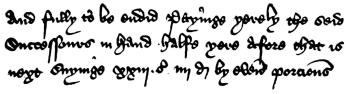 and fully to be endid Payinge yerely the seid
Successours in hand halfe yere afore that is
next suyinge xxiii.s. iiii d by even porcions